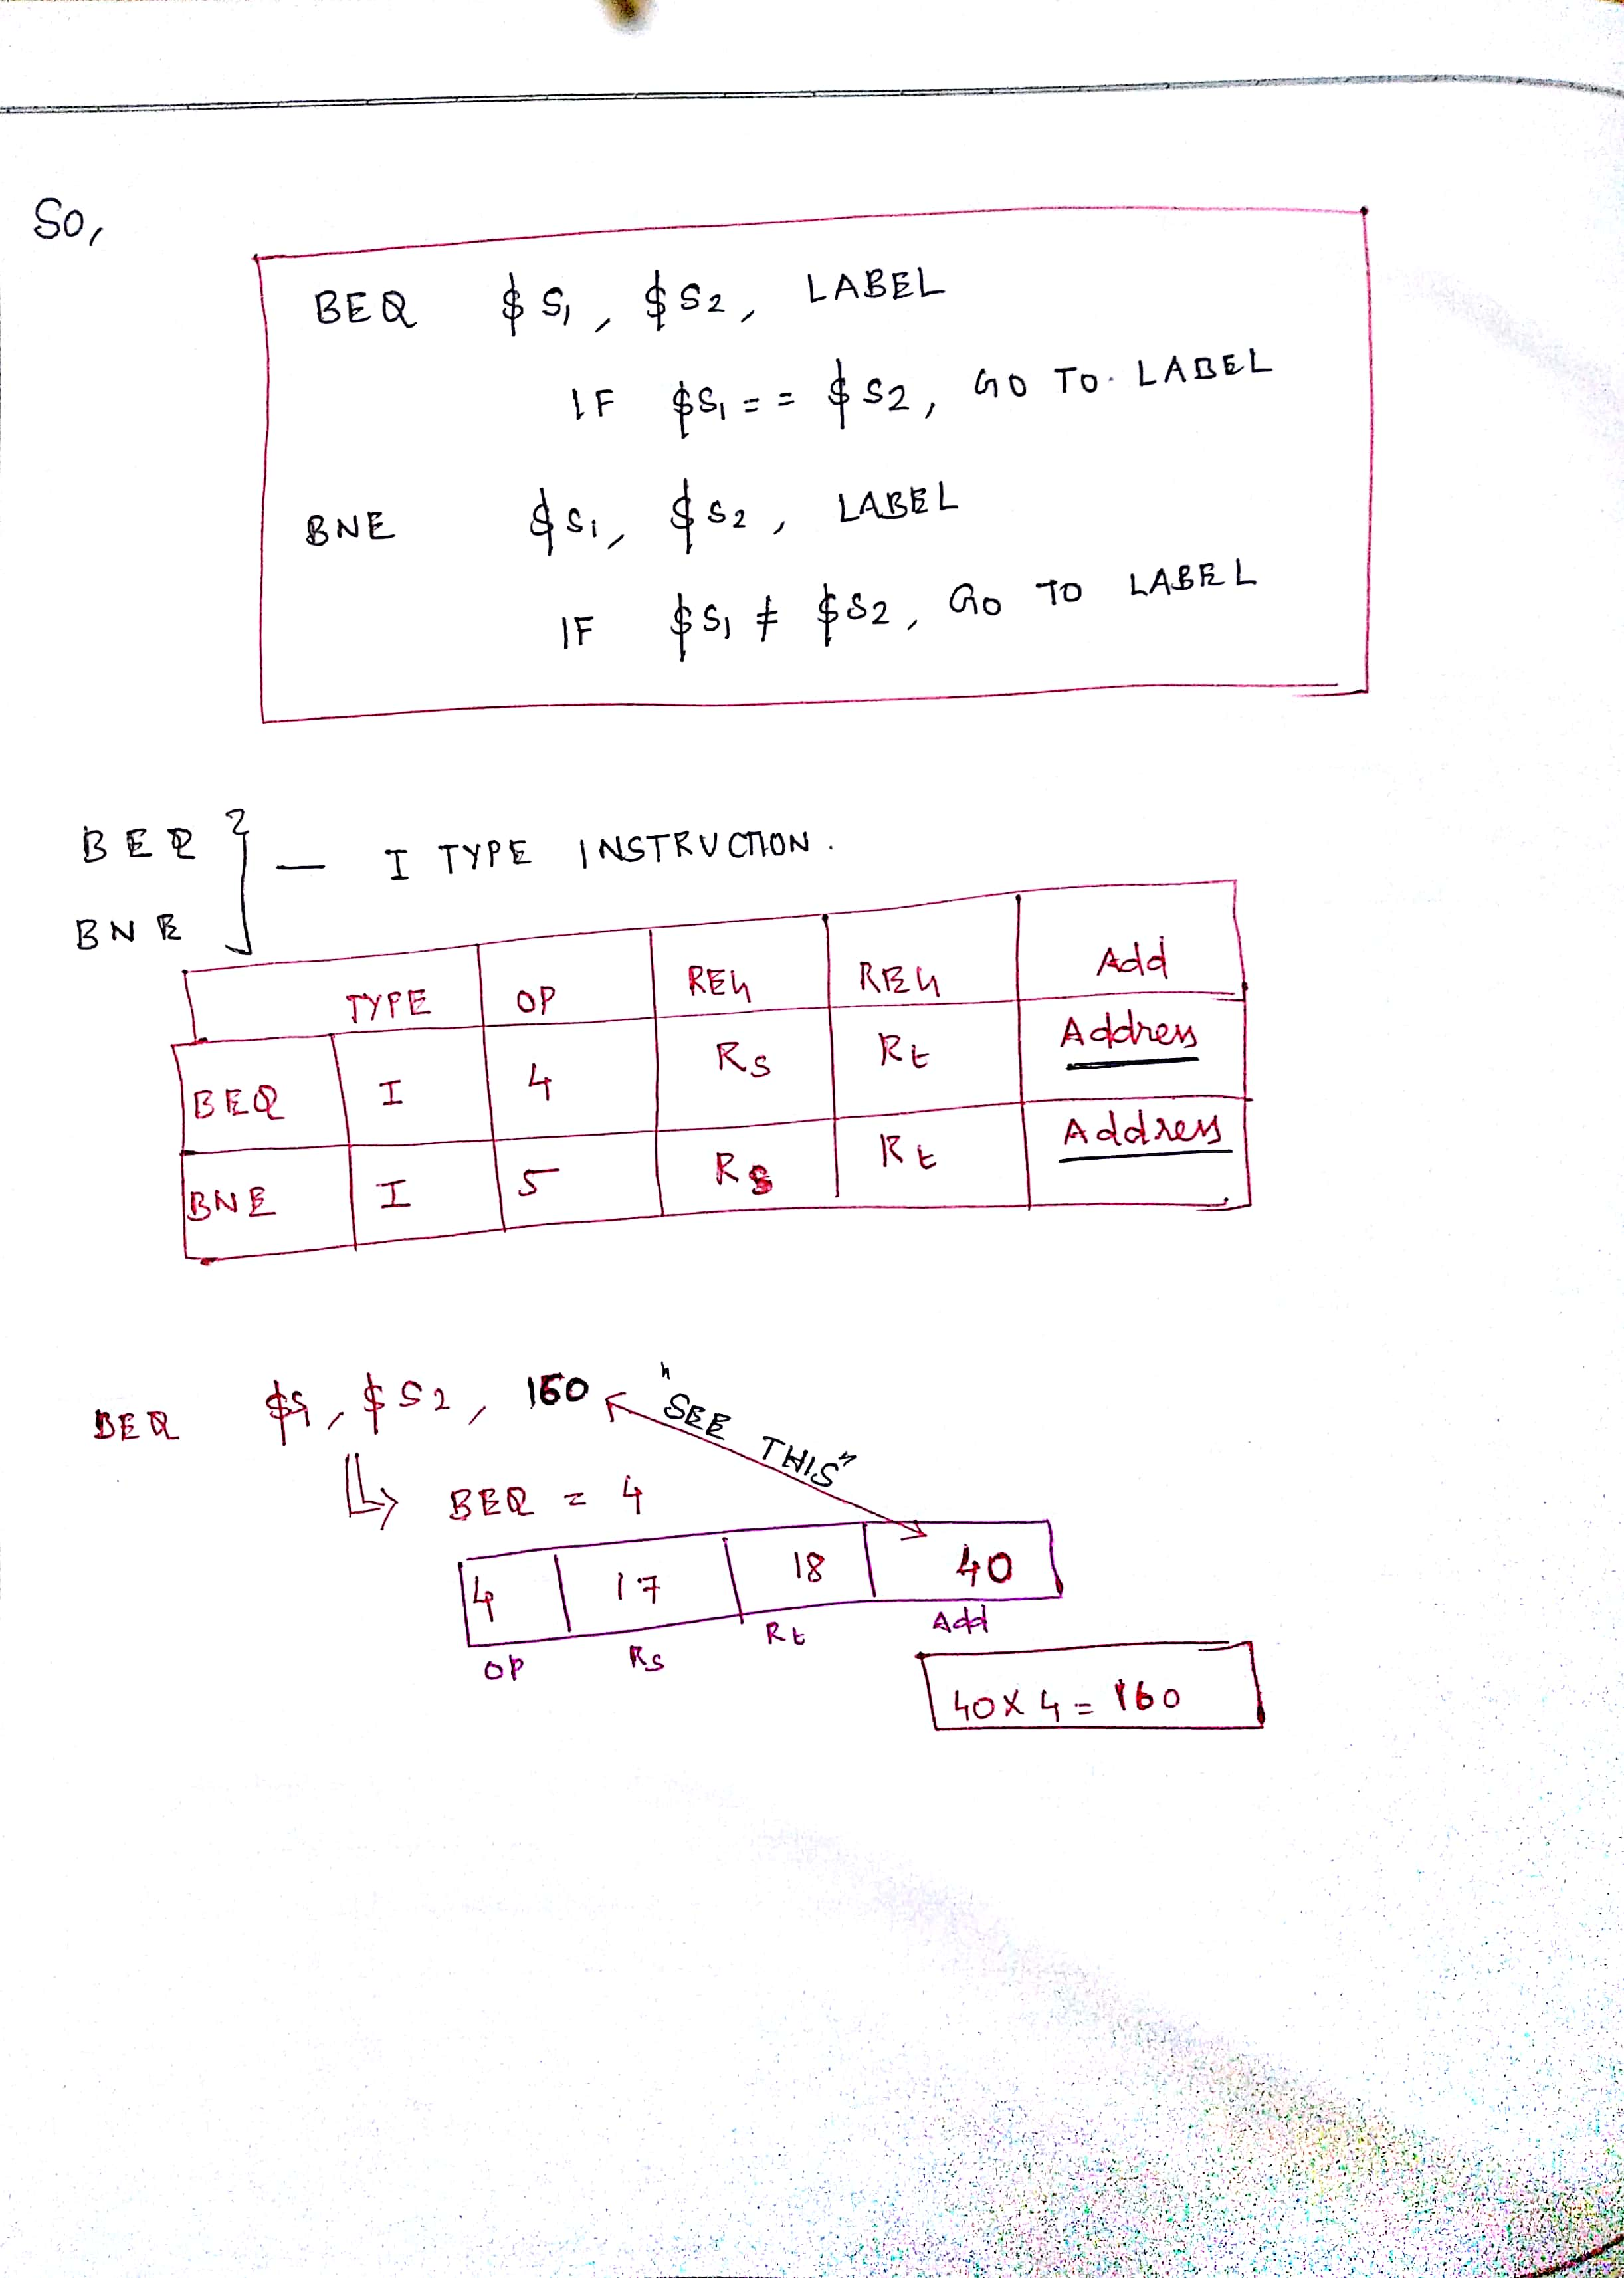 So,
BEQ $S1, $S2, LABEL
IF $S1 == $S2, GO TO. LABEL
BNE $S1, $S2, LABEL
IF $S1 ≠ $S2, GO TO LABEL
BEQ
BNE } — I TYPE INSTRUCTION.
TYPE OP REG REG Add
BEQ I 4 Rs Rt Address
BNE I 5 Rs Rt Address
BEQ $S1, $S2, 160 "SEE THIS"
BEQ = 4
4 17 18 40
OP Rs Rt Add
40 X 4 = 160